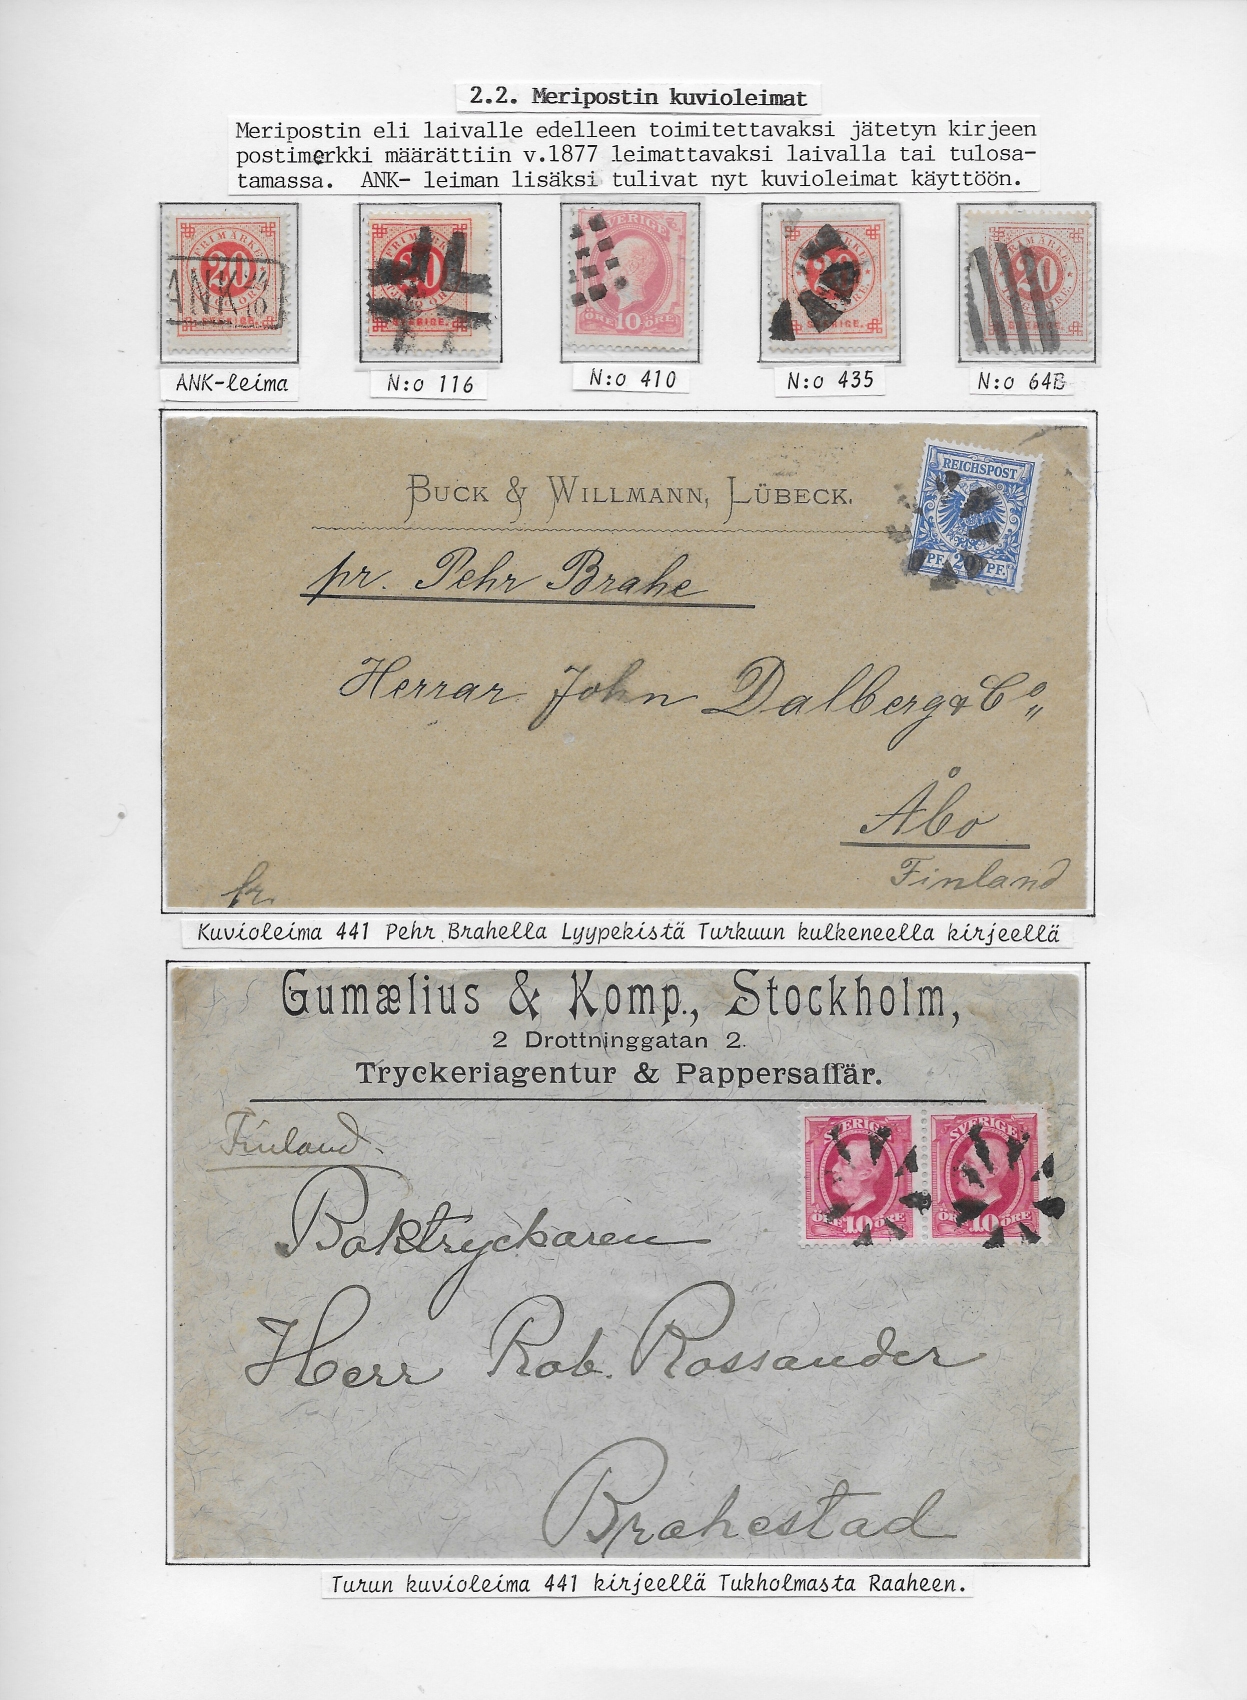 2.2. Meripostin kuvioleimat
Meripostin eli laivalle edelleen toimitettavaksi jätetyn kirjeen
postimerkki määrättiin v.1877 leimattavaksi laivalla tai tulosa-
tamassa. ANK- leiman lisäksi tulivat nyt kuvioleimat käyttöön.
FRIMÄRKE
20
ANK
FRIMÄRKE
20
SVERIGE
ÖRE 10 ÖRE
SVERIGE
20
SVERIGE
ANK-leima
N:o 116
N:o 410
N:o 435
N:o 64B
BUCK & WILLMANN, LÜBECK.
REICHSPOST
PF. 20 PF.
pr. Pehr Brahe
Herrar John Dalberg & Co
Åbo
Finland
fr.
Kuvioleima 441 Pehr Brahella Lyypekistä Turkuun kulkeneella kirjeellä
Gumælius & Komp., Stockholm,
2 Drottninggatan 2.
Tryckeriagentur & Pappersaffär.
Finland
SVERIGE
SVERIGE
ÖRE 10 ÖRE
ÖRE 10 ÖRE
Boktryckaren
Herr Rob. Rossander
Brahestad
Turun kuvioleima 441 kirjeellä Tukholmasta Raaheen.